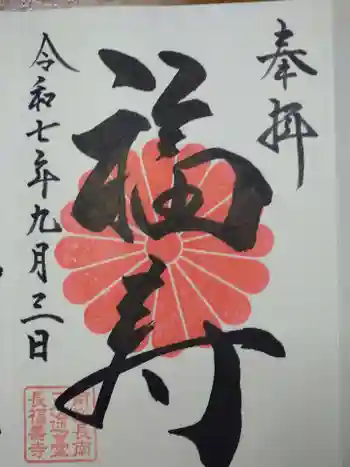 奉拝
福寿
令和七年九月三日
長福寿寺